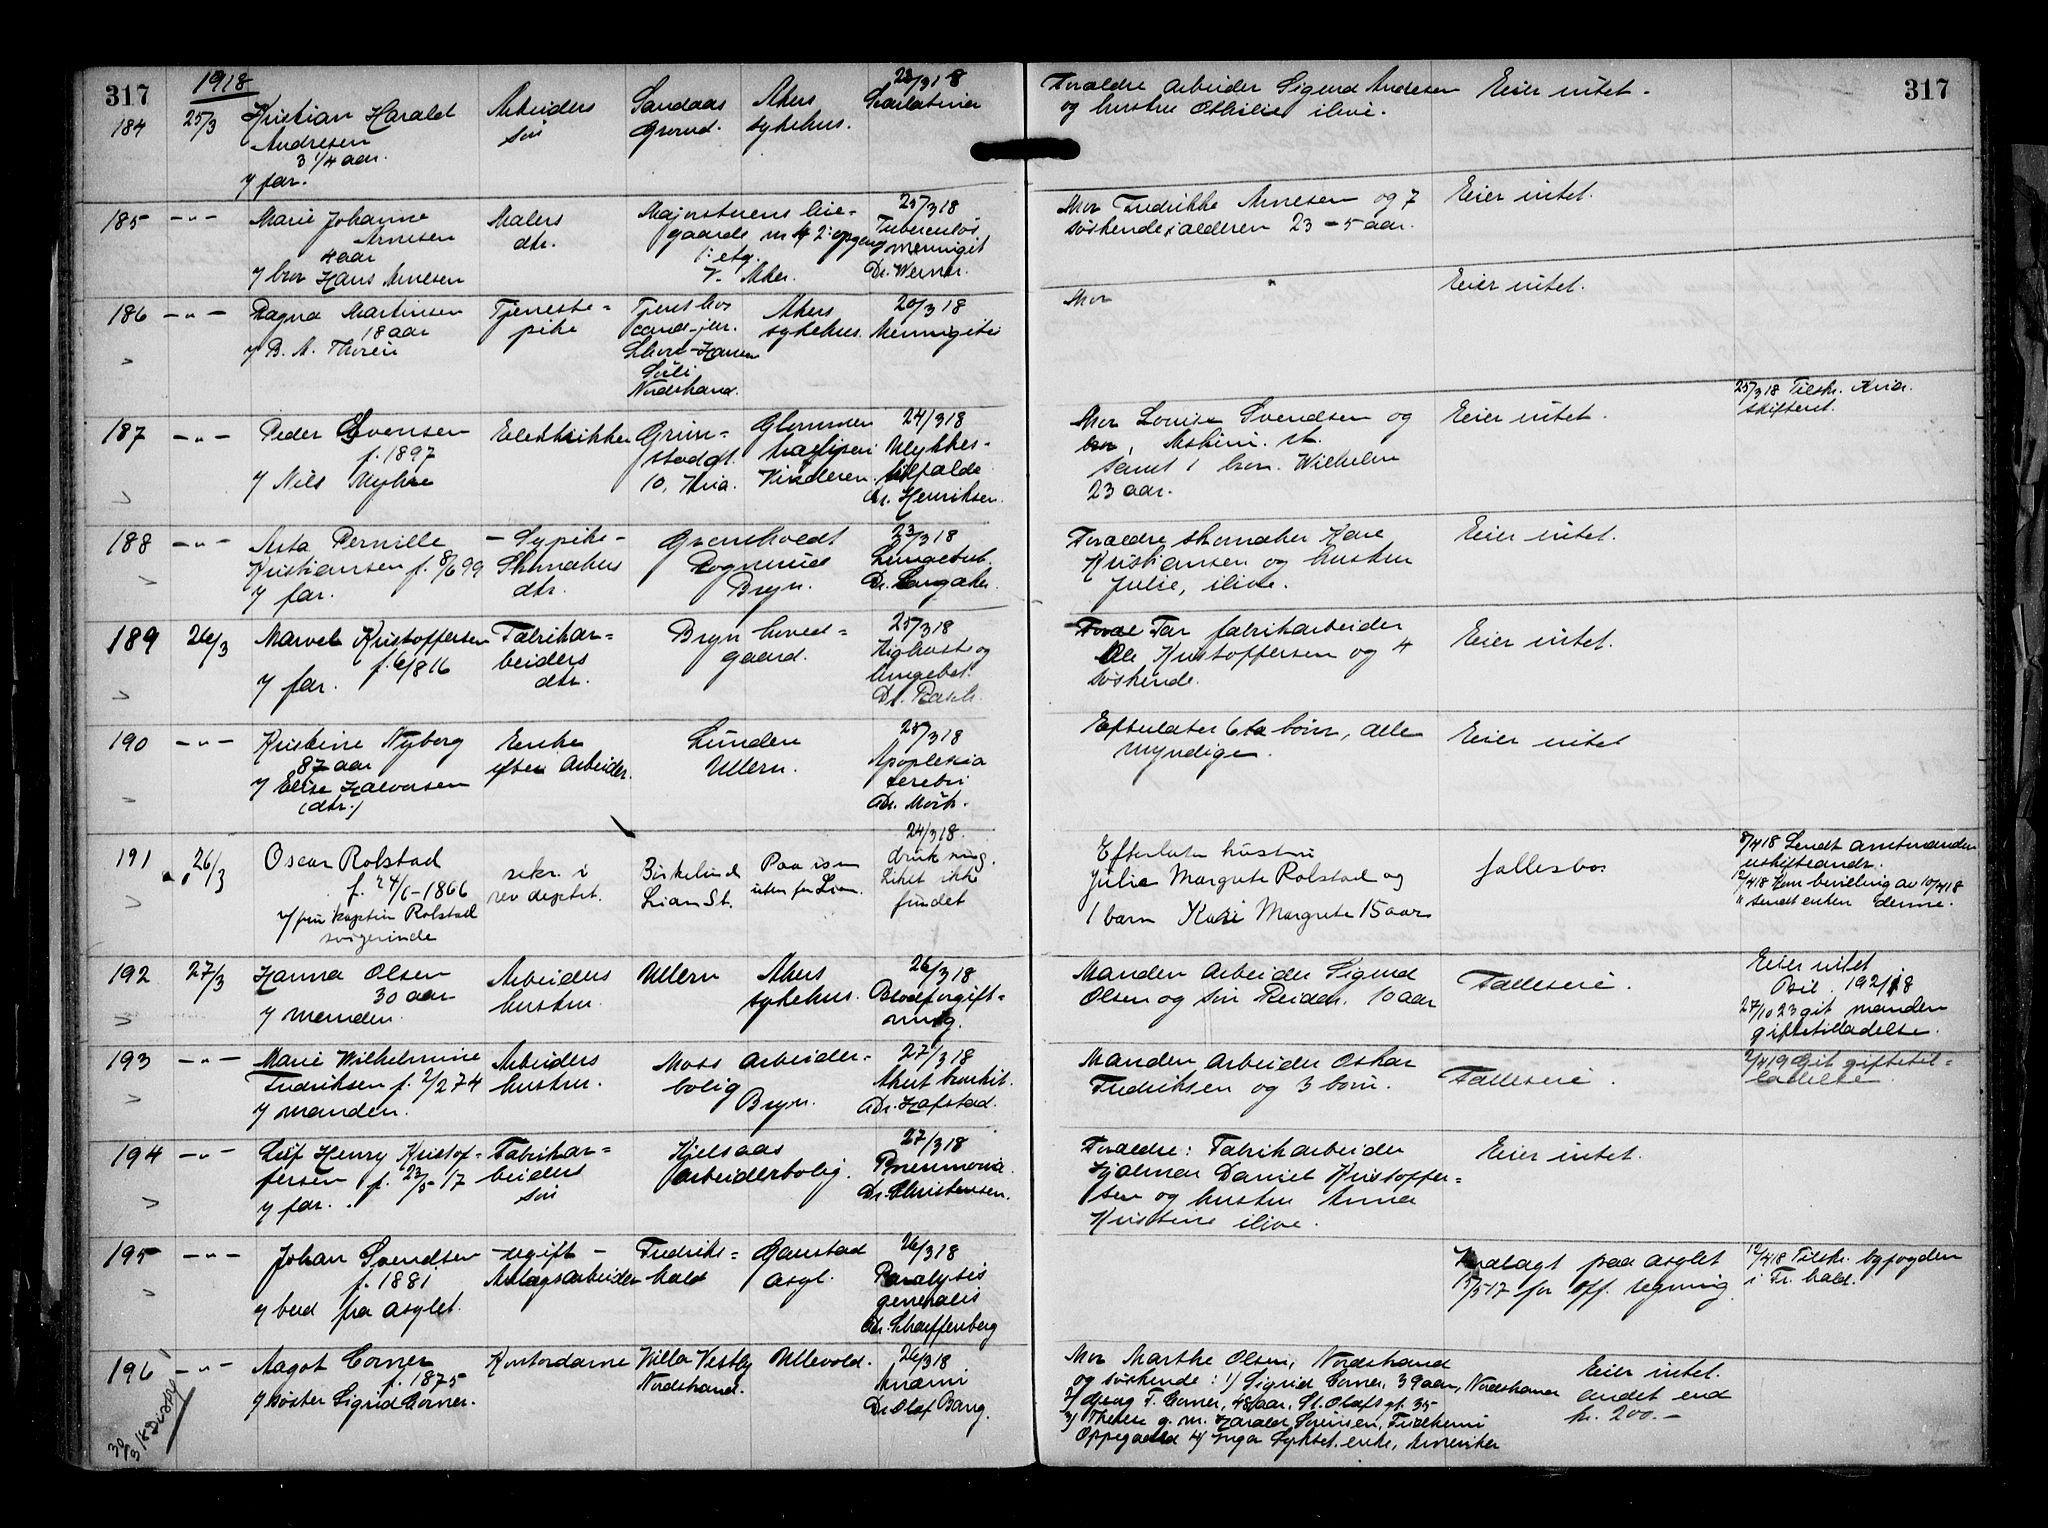 317
1918
317
184
25/3
Kristian Harald
Andresen
3 1/4 aar.
v/ far.
Arbeiders
søn
Sandaas
Grorud.
Akers
sykehus.
23/3 18
Scarlatina
Foraldre Arbeider Sigurd Andresen
og hustru Othilie ilive.
Eier intet.
185
-"-
Marie Johanne
Arnesen
4 aar
v/ bror Hans Arnesen
Malers
dtr.
Majorstuens leie=
gaarde nr 4 2: opgang
1: etg.
V. Aker.
25/3 18
Tuberculøs
meningit
Dr. Werner.
Mor Fredrikke Arnesen og 7
søskende i alderen 23 - 5 aar.
Eier intet.
186
-"-
Ragna Martinsen
18 aar
v/ B. A. Thoren
Tjeneste=
pike
Tjent hos
cand. jur.
Hansen
Nordstrand.
Akers
sykehus.
20/3 18
Meningitis
Mor
Eier intet.
187
-"-
Peder Svensen
f. 1897
v/ Nils Myhre
Elektrikker
Grim=
stadgt.
10, Kria.
Glommen
træsliperi
Vinderen.
24/3 18
Ulykkes=
tilfælde
Dr. Henriksen.
Mor Louise Svendsen og
bror,
samt 1 bror. Wilhelm
23 aar.
Eier intet.
25/3 18 Tilskr. Kria.
skifteret.
188
-"-
Asta Pernille
Kristiansen f. 8/6 99
v/ far.
- Sypike -
Skomakers
dtr.
Grensholdt
Rognerud
Bryn.
23/3 18
Lungetub.
Dr. Langaker.
Foraldre skomaker Kare
Kristiansen og hustru
Julie, ilive.
Eier intet.
189
26/3
Marvel Kristoffersen
f. 6/8 16
v/ far.
Fabrikar=
beiders
dtr.
Bryn hoved=
gaard.
25/3 18
Kighoste og
lungebet.
Dr. Rasch.
Far fabrikarbeider
Ole Kristoffersen og 4
søskende.
Eier intet.
190
-"-
Kristine Nyborg
87 aar
v/ Elise Halvorsen
(dtr.)
Enke
efter Arbeider.
Lunden
Ullern.
25/3 18
Apoplexia
cerebri
Dr. Mørk.
Efterlater 6 ta børn, alle
myndige.
Eier intet
191
26/3
Oscar Rolstad
f. 24/6-1866
v/ fru kaptein Rolstad
svigerinde
sekr. i
rev deptet.
Birkelund
Lian St.
Paa isen
uten for Lian.
24/3 18.
drukning.
Liket ikke
fundet
Efterlater hustru
Julie Margrete Rolstad og
1 barn Kari Margrete 15 aar
fællesbo.
8/4 18 Sendt amtmanden
uskifteandr.
12/4 18 Kom bevilling av 10/4 18
" sendt enken denne.
192
27/3
Hanna Olsen
30 aar
v/ manden.
Arbeiders
hustru.
Ullern
Akers
sykehus.
26/3 18
Blodforgift=
ning.
Manden Arbeider Sigurd
Olsen og søn Reidar. 10 aar
Fælleseie.
Eier intet
Bil. 192/18
27/10 23 git manden
giftetilladelse.
193
-"-
Marie Wilhelmine
Fredriksen f. 2/2 74
v/ manden.
Arbeiders
hustru.
Moss arbeider=
bolig
Bryn.
27/3 18
Akut bronkit.
Dr. Hafstad.
Manden Arbeider Oskar
Fredriksen og 3 børn.
Fælleseie.
2/4 19 Git giftetil=
ladelse
194
-"-
Leif Henry Kristof=
fersen f. 23/5-17
v/ far.
Fabrikar=
beiders
søn
Kjelsaas
arbeiderbolig.
27/3 18
Pneumonia.
Dr. Christensen.
Foraldre: Fabrikarbeider
Hjalmar Daniel Kristoffer=
sen og hustru Anna
Kristine ilive.
Eier intet.
195
-"-
Johan Svendsen
f. 1881
v/ bud fra asylet.
- ugift -
Anlægsarbeider
Fredriks=
hald
Gaustad
asyl.
26/3 18
Paralysis
generalis
Dr. Scharffenberg
Indlagt paa asylet
15/5 17 for off. regning
12/4 18 Tilskr. byfogden
i Fr. hald.
196
-"-
Aagot Corner
f. 1875
v/ søster Sigrid Corner.
Kontordame
Villa Vestby
Nordstrand.
Ullevold.
26/3 18
Anæmi
Dr. Olaf Bang.
Mor Marthe Olsen, Nordstrand
og søskende: 1) Sigrid Corner, 39 aar, Nordstrand
2) Georg F. Corner, 48 aar, St. Olafs gt. 35
3) Therese g. m. Harald Sørensen,
Oppegaard 4) Inga enke, Amerika
Eier intet.
andet end
kr. 200.-
30/3 18